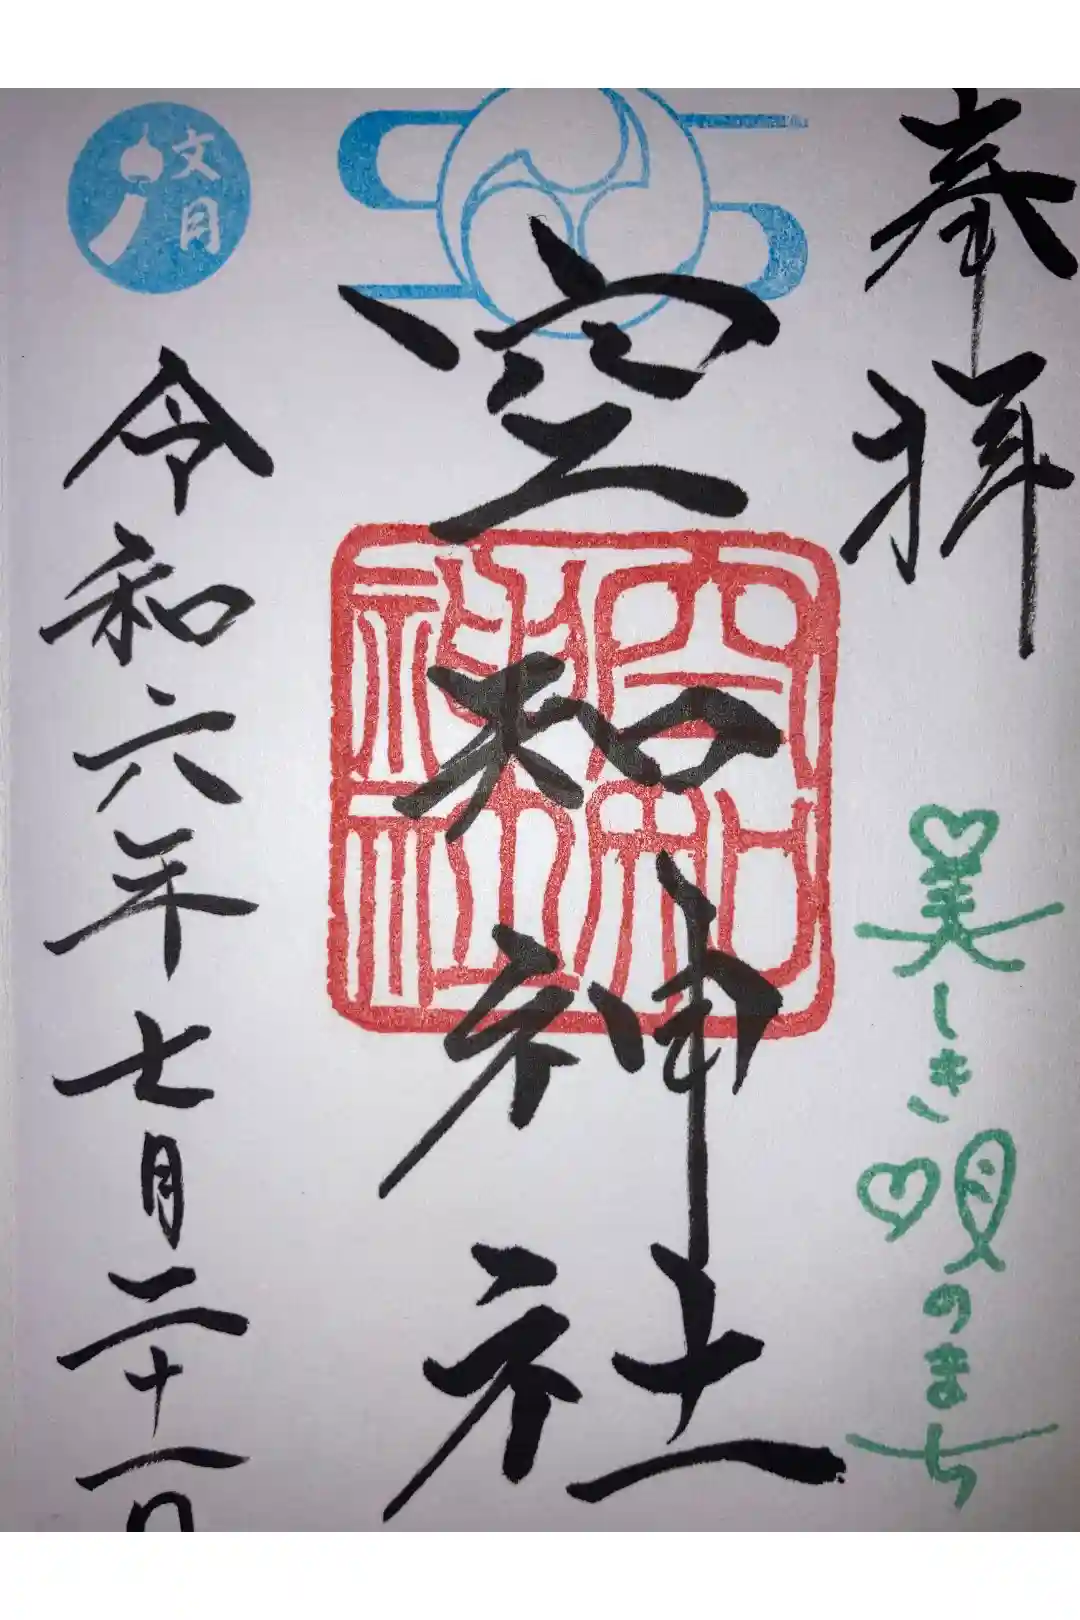 奉拝
美しき唄のまち
空知神社
空知神社
文月
令和六年七月二十一日